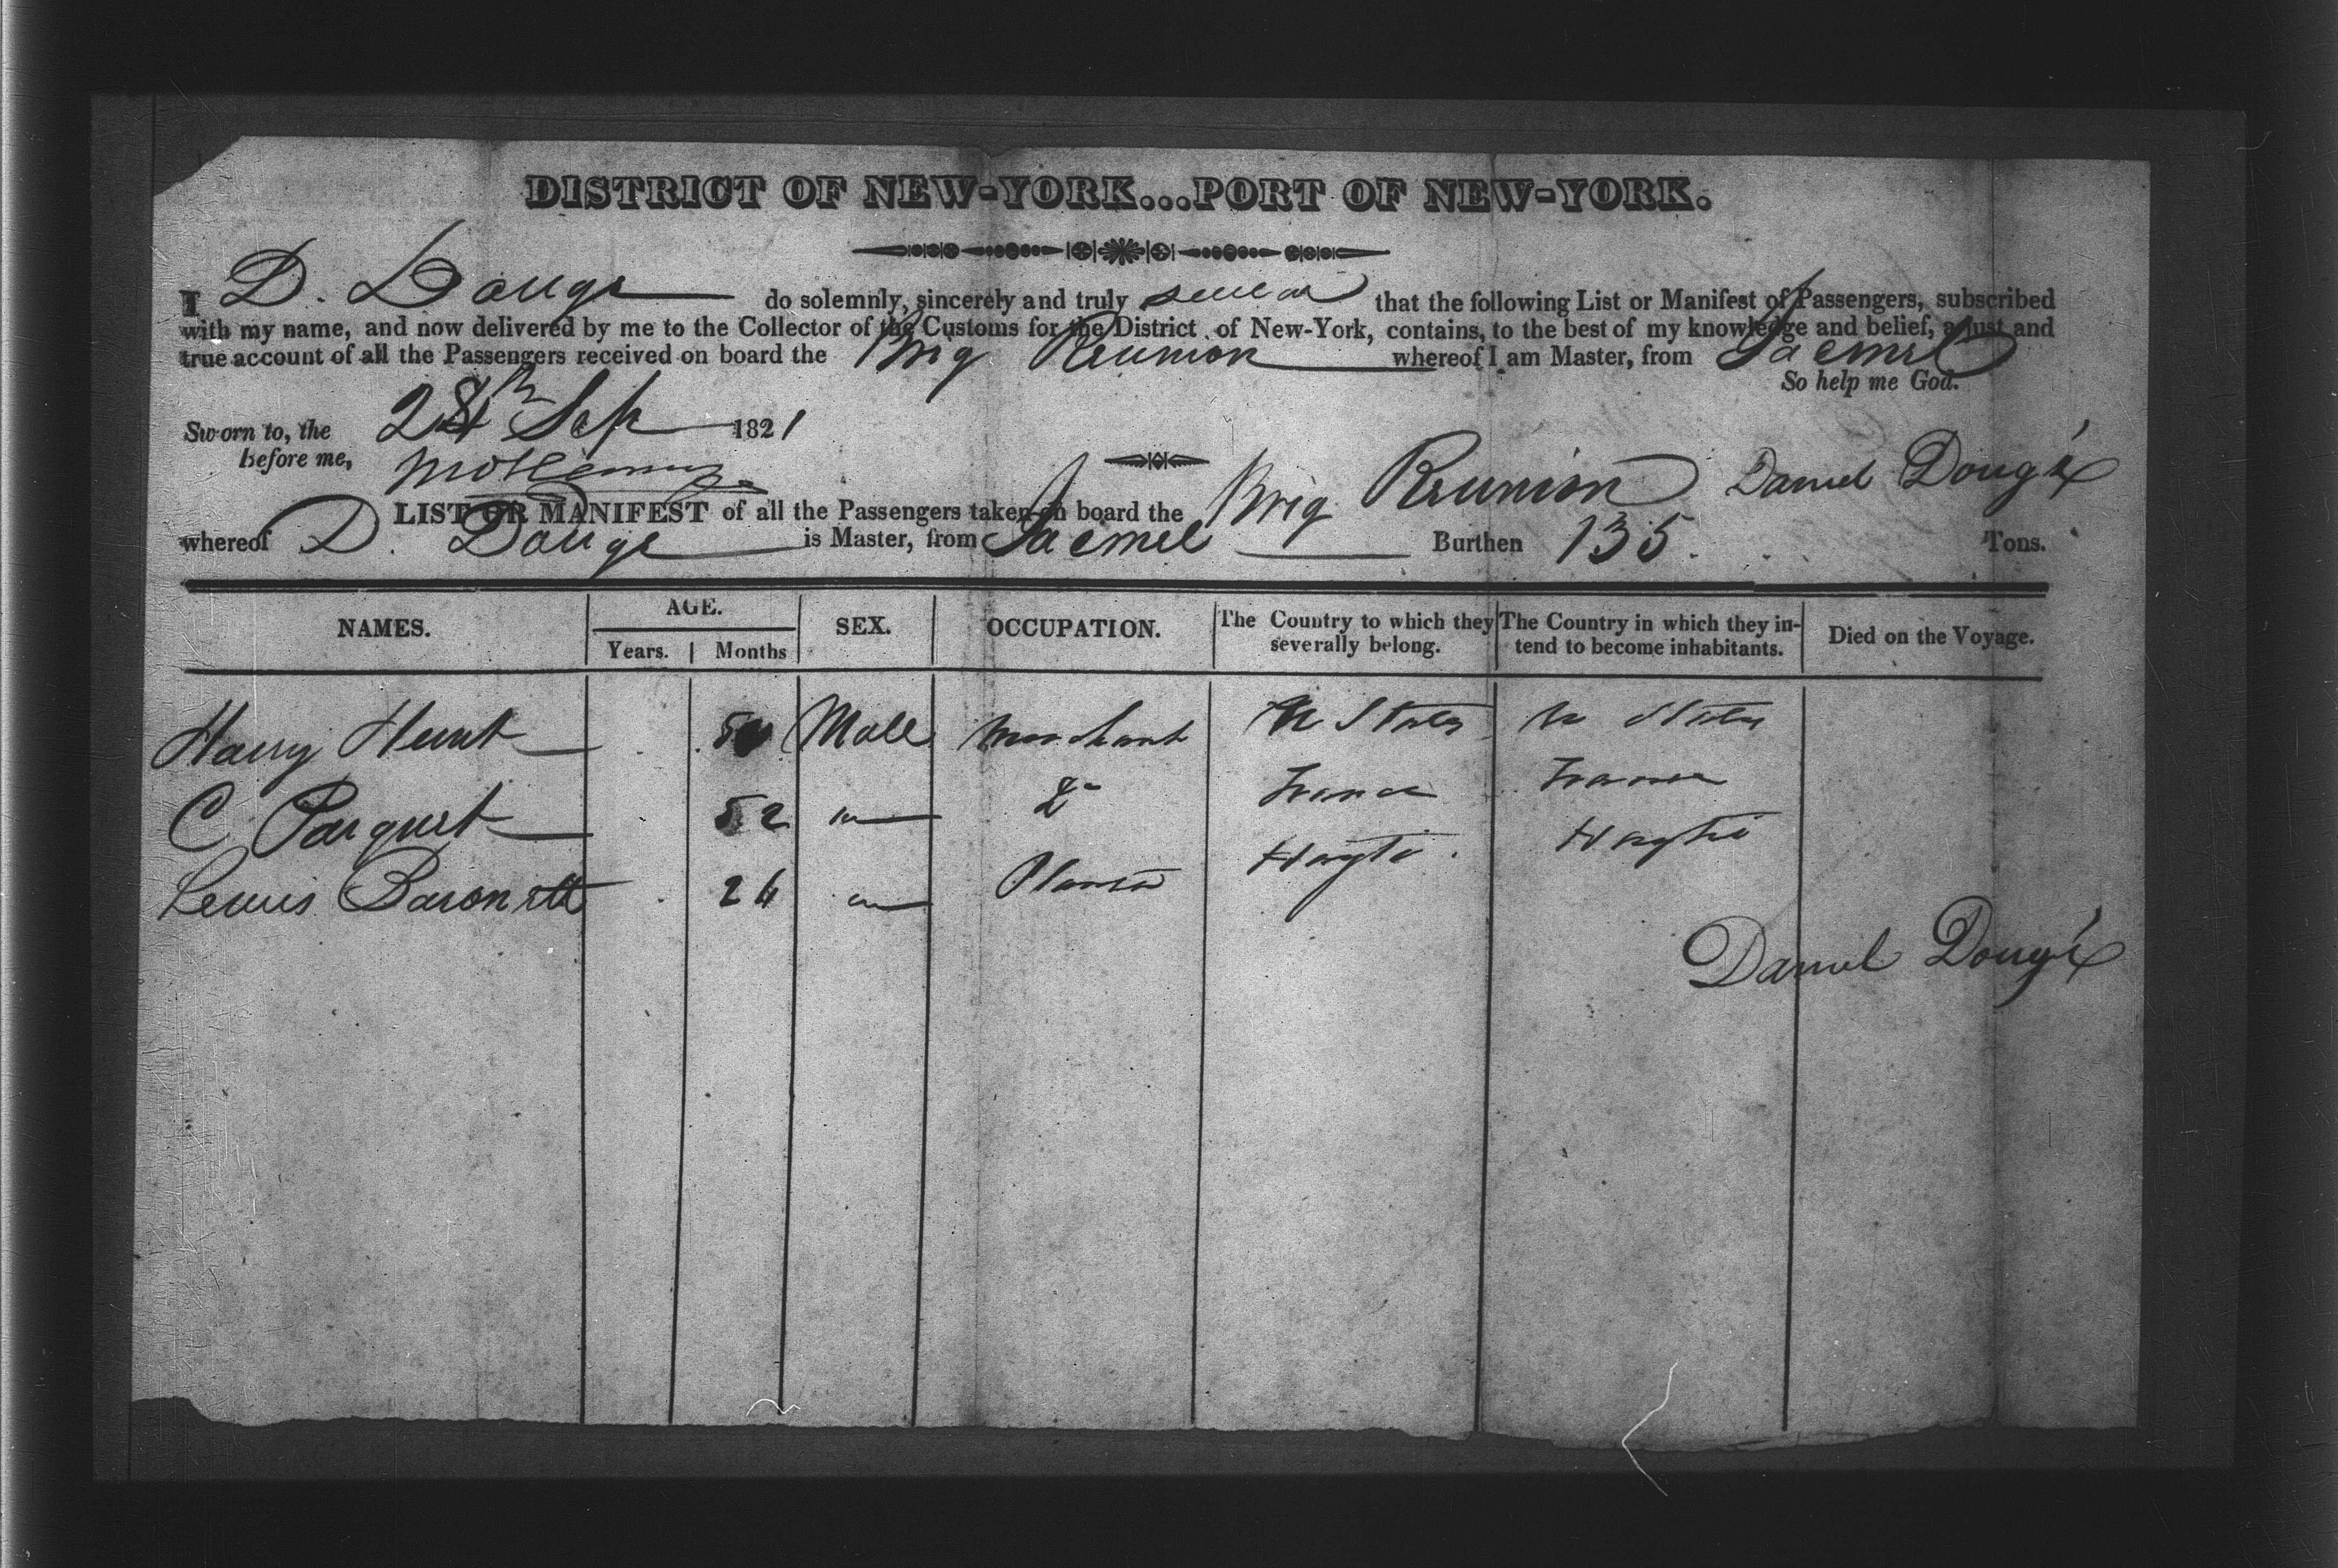 DISTRICT OF NEW-YORK...PORT OF NEW-YORK.
I D. Douge do solemnly, sincerely and truly swear that the following List or Manifest of Passengers, subscribed
with my name, and now delivered by me to the Collector of the Customs for the District of New-York, contains, to the best of my knowledge and belief, a just and
true account of all the Passengers received on board the Brig Reunion whereof I am Master, from Jacmel
So help me God.
Sworn to, the Sep 1821
before me,
Daniel Dougé
LIST OR MANIFEST of all the Passengers taken on board the Brig Reunion
whereof D. Douge is Master, from Jacmel Burthen 135. Tons.
NAMES. AGE. SEX. OCCUPATION. The Country to which they severally belong. The Country in which they intend to become inhabitants. Died on the Voyage.
Years. Months
Harry Hunt Male Merchant U States U States
C Parquet 52 Do France France
Lewis Baronett 26 Planter Hayti Hayti
Daniel Dougé